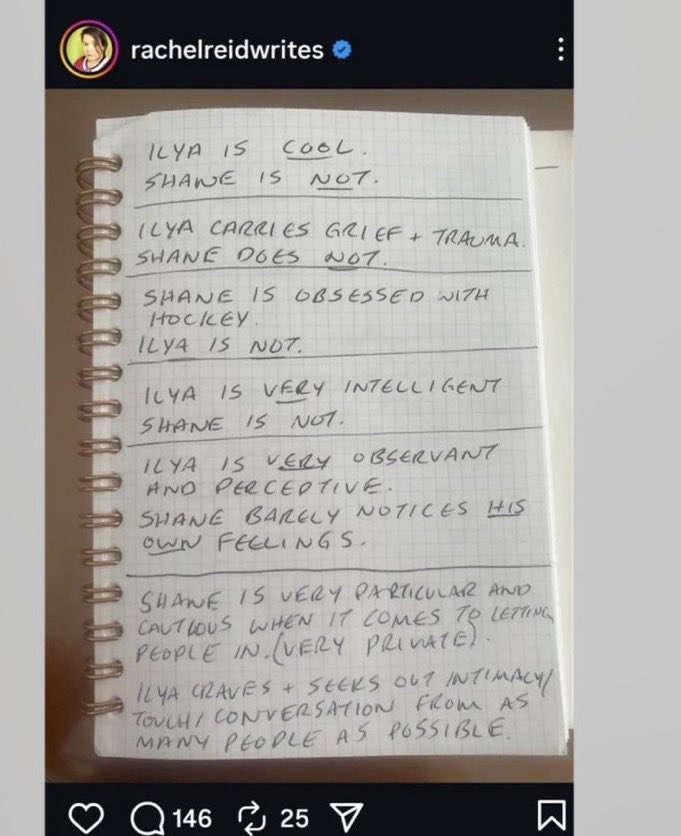 rachelreidwrites
ILYA IS COOL.
SHANE IS NOT.
ILYA CARRIES GRIEF + TRAUMA.
SHANE DOES NOT.
SHANE IS OBSESSED WITH
HOCKEY.
ILYA IS NOT.
ILYA IS VERY INTELLIGENT
SHANE IS NOT.
ILYA IS VERY OBSERVANT
AND PERCEPTIVE.
SHANE BARELY NOTICES HIS
OWN FEELINGS.
SHANE IS VERY PARTICULAR AND
CAUTIOUS WHEN IT COMES TO LETTING
PEOPLE IN. (VERY PRIVATE).
ILYA CRAVES + SEEKS OUT INTIMACY/
TOUCH/ CONVERSATION FROM AS
MANY PEOPLE AS POSSIBLE.
146 25